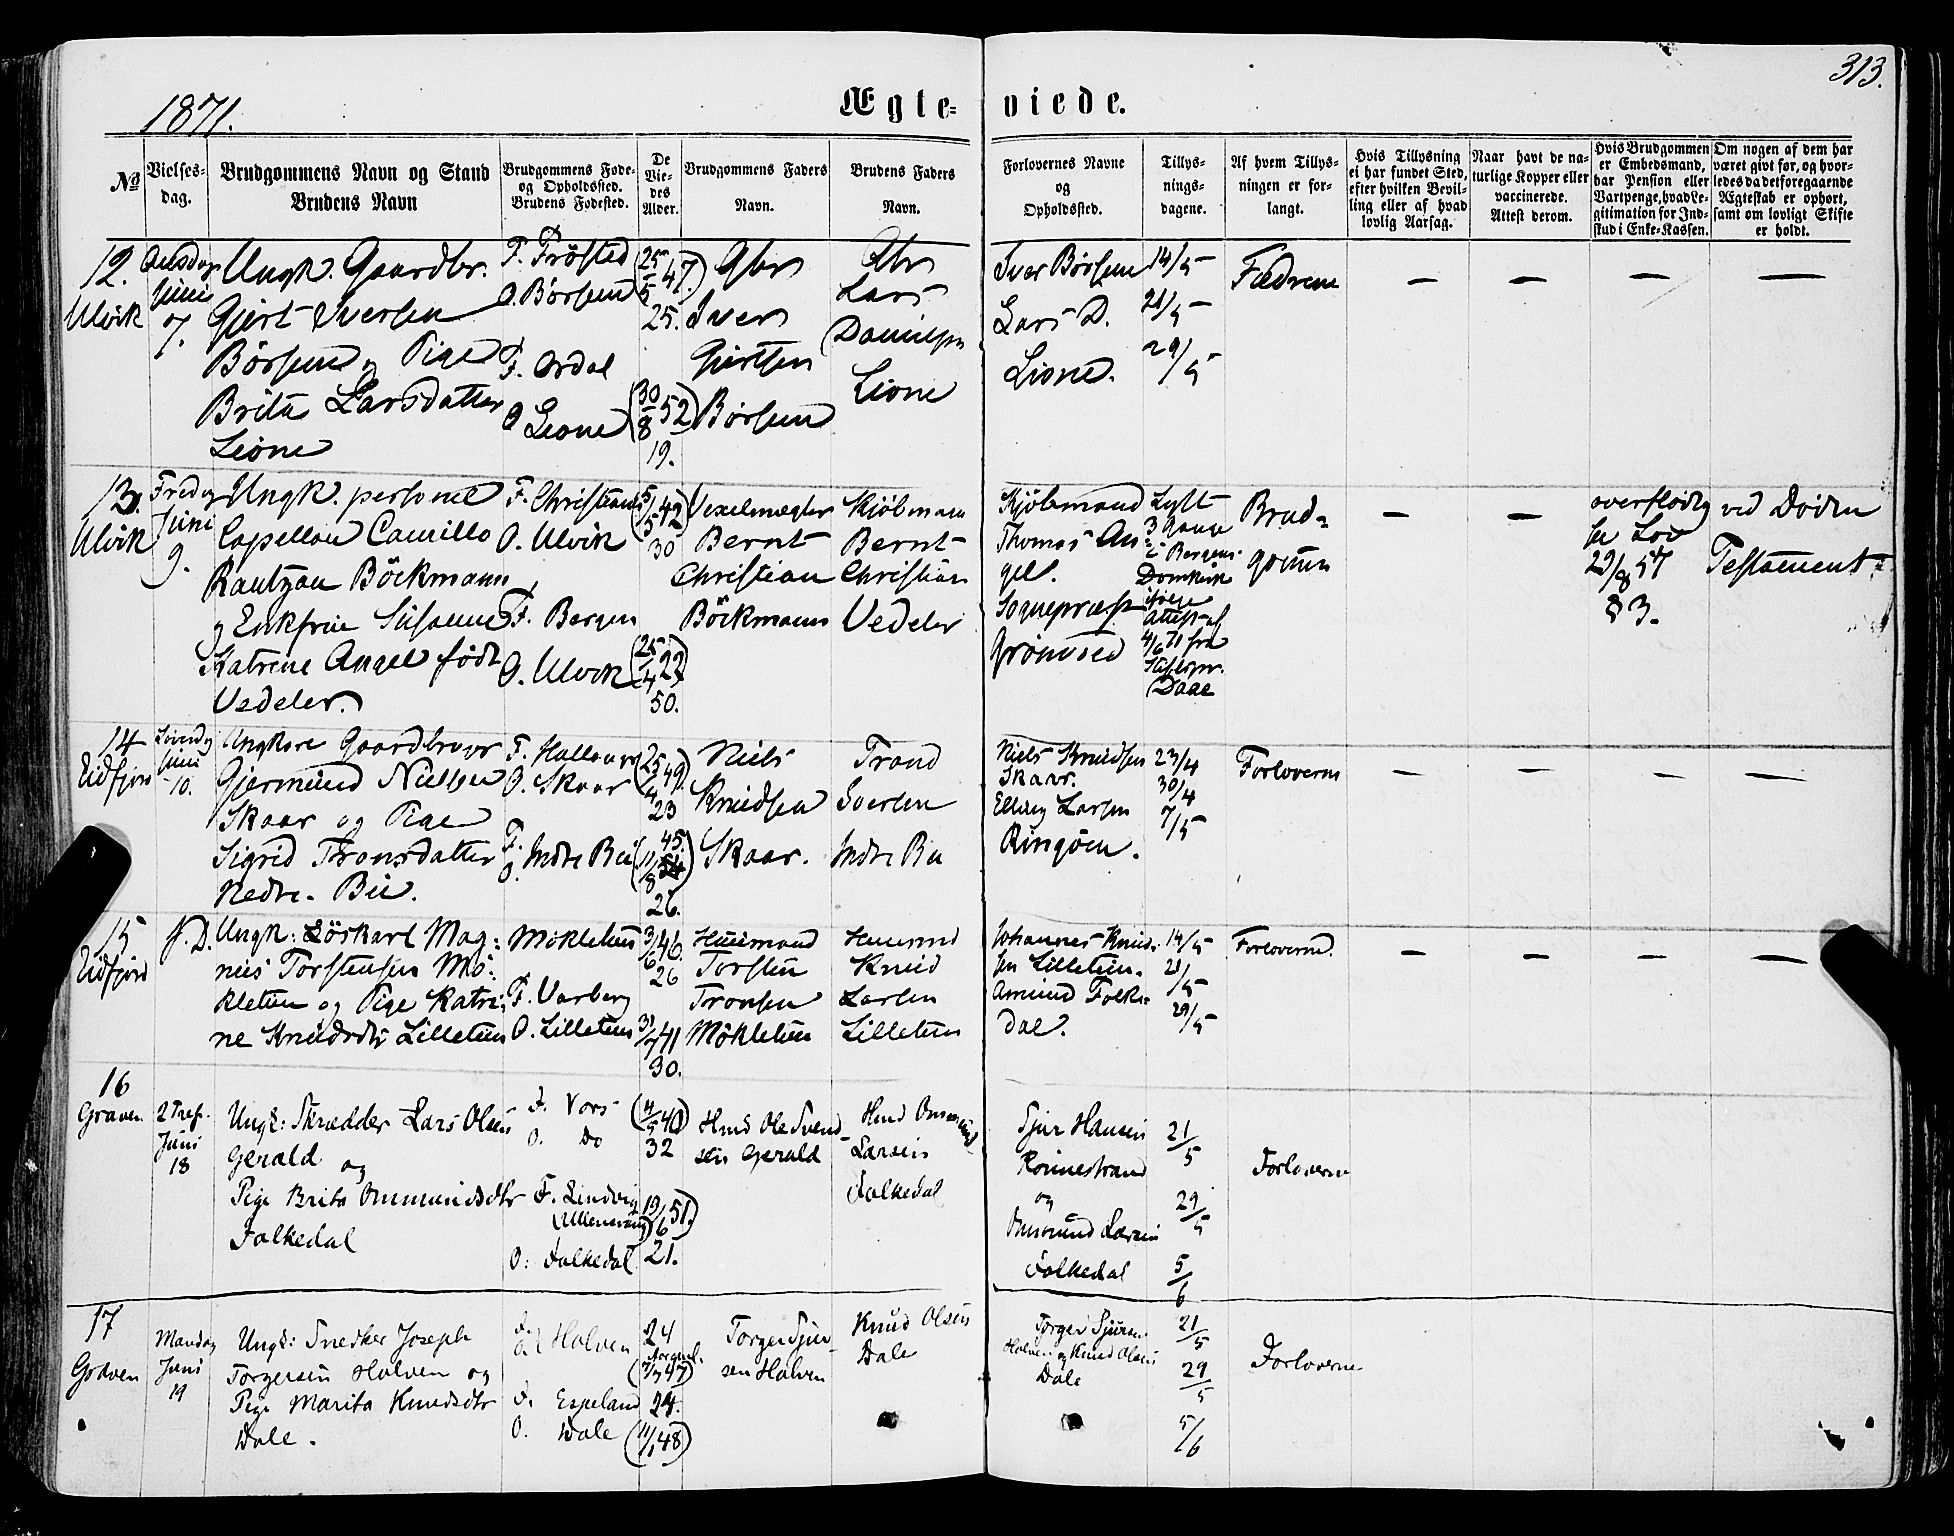 313.
1871.
Ægte-viede.
No
Vielses-
dag.
Brudgommens Navn og Stand
Brudens Navn
Brudgommens Føde-
og Opholdssted.
Brudens Fødested.
De
Vie-
des
Alder.
Brudgommens Faders
Navn.
Brudens Faders
Navn.
Forlovernes Navne
og
Opholdssted.
Tillys-
nings-
dagene.
Af hvem Tillys-
ningen er for-
langt.
Hvis Tillysning
ei har fundet Sted,
efter hvilken Bevil-
ling eller af hvad
lovlig Aarsag.
Naar havt de na-
turlige Kopper eller
vaccinerede.
Attest derom.
Hvis Brudgommen
er Embedsmand,
har Pension eller
Vartpenge, hvad Le-
gitimation for Ind-
skud i Enke-Kassen.
Om nogen af dem har
været givt før, og hvor-
ledes da det foregaaende
Ægteskab er ophørt,
samt om lovligt Skifte
er holdt.
12.
Ulvik
Onsdag
Juni
7.
Ungk. Gaardbr.
Gjert Iversen
Børsem og Pige
Brita Larsdatter
Lione
F. Frøsted
O. Børsem
F. Ordal
O Lione
25/5 47)
25.
(30/8 52)
19.
Gbr
Iver
Gjertsen
Børsem
Gbr
Lars
Danielsen
Lione
Iver Børsem
Lars D.
Lione.
14/5
21/5
29/5
Fædrene
— — — —
13.
Ulvik
Fredag
Juni
9.
Ungk. personel
Capellan Camillo
Rantzau Böckmann
og Enkefrue Susanne
Katrine Angel født
Vedeler.
F. Christians
O. Ulvik
F. Bergen
O. Ulvik
5/5 42)
30
(25/4 22)
50.
Vexelmægler
Bernt
Christian
Böckmann
Kjøbmann
Bernt
Christian
Vedeler
Kjøbmand
Thomas An-
gell.
Sognepræst
Grønvold
Lyst
3 Gange
i Bergens
Domkirke
ifølge
Attest af
4/6 71 fra
Stiftspr.
Daae
Brud-
gomen
— —
overflødig
se Lov
29/8 57
§ 3.
ved Døden
Testament
14
Eidfjord
Løverdag
Juni
10.
Ungkare Gaardbruger
Gjermund Nielsen
Skaar og Pige
Sigrid Tronsdatter
Nedre. Bu.
F. Hallanger
O. Skaar
F.
O. Indre Bu
25/4 49)
23
45.
(11/8 )
26.
Niels
Knudsen
Skaar.
Trond
Iversen
Indre Bu
Niels Knudsen
Skaar.
Elling Larsen
Ringøen.
23/4
30/4
7/5
Forloverne
— — — —
15
Eidfjord
s. D.
Ungk: Løskarl Mag-
nus Torstensen Mø-
kletun og Pige Katri-
ne Knudsdtr Lilletun
Mökletun
F. Varberg
O. Lilletun
3/6 46
26
31/7 41
30.
Huusmand
Torsten
Tronsen
Mökletun
Huusmd
Knud
Larsen
Lilletun
Johannes Knud-
sen Lilletun.
Amund Folke-
dal.
14/5
21/5
29/5
Forloverne.
— — — —
16
Graven
2 Tref.
Juni
18
Ungk: Skrædder Lars Olsen
Gerald og
Pige Brita Ommundsdtr
Folkedal
F. Vors
O. Do
F. Lindvig
(Ullensvang)
O: Folkedal
(11/5 40)
32
19/6 51.)
21.
Hmd Ole Svend-
sen Gerald
Hmd Ommund
Larsen
Folkedal
Sjur Hansen
Rønnestrand
og
Ommund Larsen
Folkedal
21/5
29/5
5/6
Forloverne
17
Graven
Mandag
Juni
19
Ungk: Snedker Joseph
Torgersen Halven og
Pige Marita Knudsdtr
Dale.
F.
O. } Halven
F. Espeland
O. Dale
24
(7/7 47)
24.
(11/1 48)
Torger Sjur-
sen Halven
Knud Olsen
Dale
Torger Sjursen
Halven og Knud Olsen
Dale
21/5
29/5
5/6
Forloverne